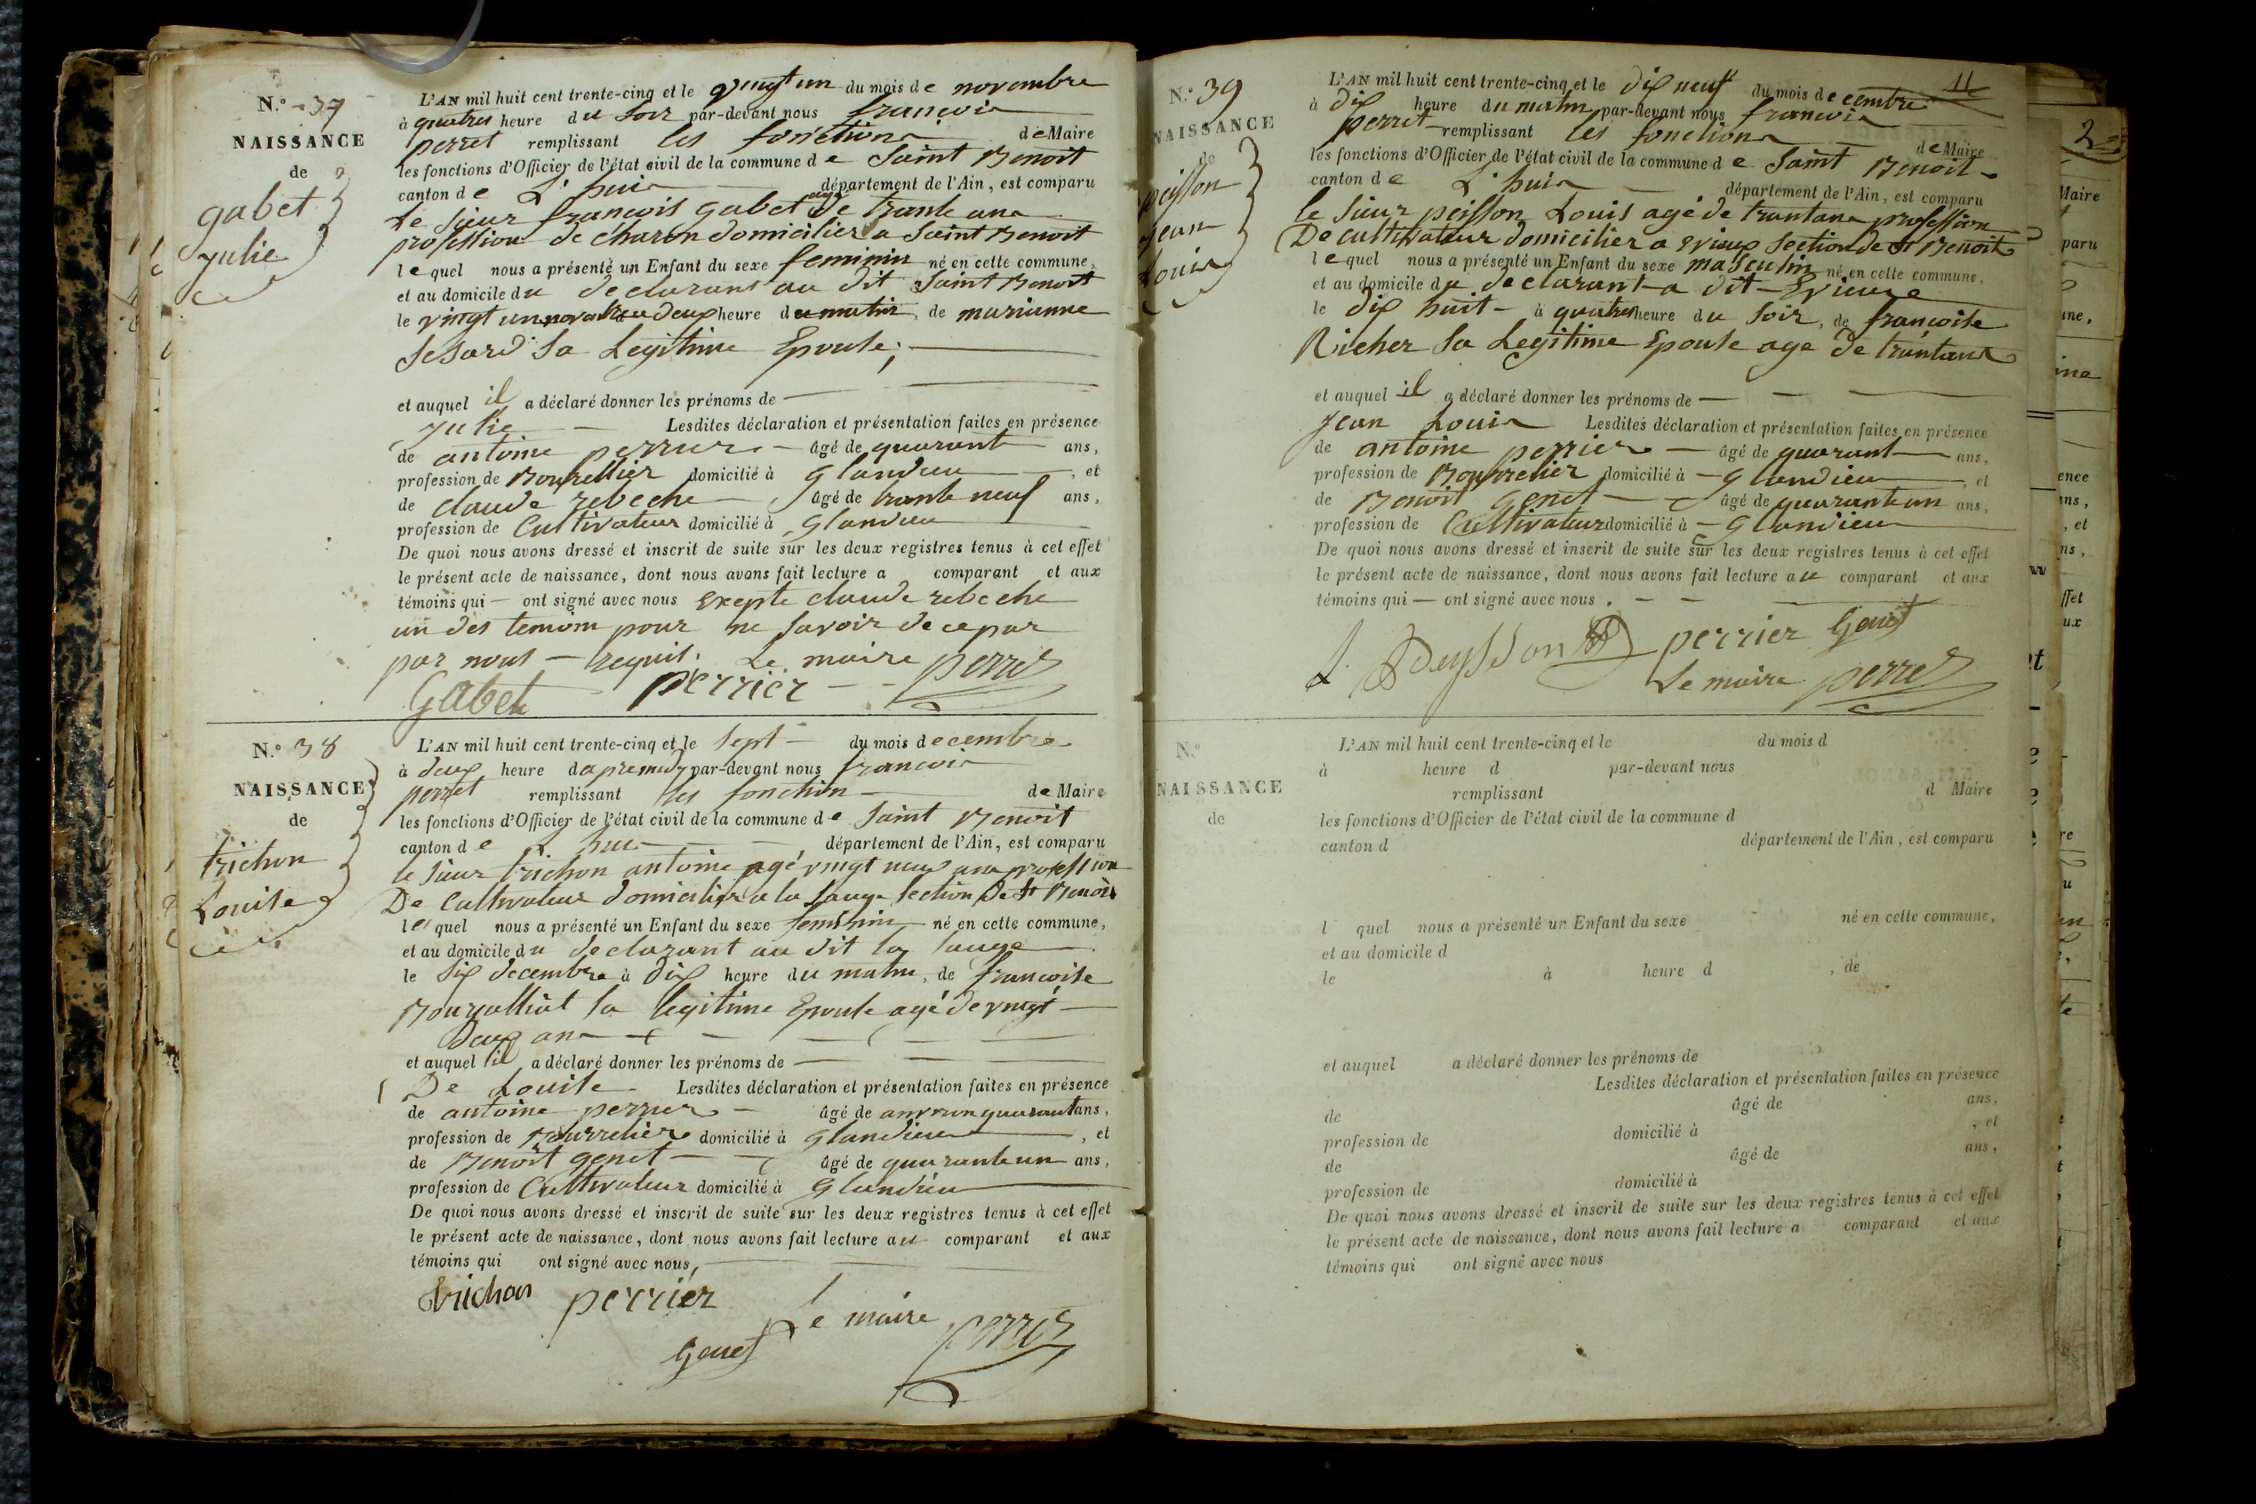 N.º 37
NAISSANCE
de
gabet
Julie
L'AN mil huit cent trente-cinq et le vingt un du mois de novembre
à quatres heure du soir par-devant nous francois
perret remplissant les fonctions de Maire
les fonctions d'Officier de l'état civil de la commune de Saint Benoit
canton de L'huis département de l'Ain, est comparu
Le sieur francois gabet agé de trante ans
profession de charon domicilier a Saint Benoit
lequel nous a présenté un Enfant du sexe feminin né en cette commune,
et au domicile du declarant au dit Saint Benoit
le vingt un novembre a deux heure du matin, de marianne
sa Legitime Epouse;
et auquel il a déclaré donner les prénoms de
Julie Lesdites déclaration et présentation faites en présence
de antoine perrier âgé de quarant ans,
profession de Bourrellier domicilié à glandieu, et
de claude rebeche âgé de trante neuf ans,
profession de Cultivateur domicilié à glandieu
De quoi nous avons dressé et inscrit de suite sur les deux registres tenus à cet effet
le présent acte de naissance, dont nous avons fait lecture a comparant et aux
témoins qui ont signé avec nous Exepte claude rebeche
un des temoin pour ne savoir de ce par
par nous requis. Le maire perret
Gabet perrier
N.º 38
NAISSANCE
de
trichon
Louise
L'AN mil huit cent trente-cinq et le sept du mois decembre
à deux heure dapremidy par-devant nous francois
perret remplissant les fonction de Maire
les fonctions d'Officier de l'état civil de la commune de Saint Benoit
canton de L'huis, département de l'Ain, est comparu
le sieur trichon antoine agé vingt neuf ans profession
De Cultivateur domicilier a la sauge section De St Benoit
lequel nous a présenté un Enfant du sexe feminin né en cette commune,
et au domicile du declarant au dit la sauge
le six decembre à dix heure du matin, de francoise
sa legitime Epouse agé de vingt
Deux ans
et auquel il a déclaré donner les prénoms de
De Louise Lesdites déclaration et présentation faites en présence
de antoine perrier âgé de anviron quarant ans,
profession de Bourrelier domicilié à glandieu, et
de Benoit genet âgé de quarante un ans,
profession de Cultivateur domicilié à glandieu
De quoi nous avons dressé et inscrit de suite sur les deux registres tenus à cet effet
le présent acte de naissance, dont nous avons fait lecture au comparant et aux
témoins qui ont signé avec nous,
trichon perrier
Le maire perret
Genet
11
N.º 39
NAISSANCE
de
peisson
Jean
Louis
L'AN mil huit cent trente-cinq et le dix neuf du mois decembre
à dix heure du matin par-devant nous francois
perret remplissant les fonctions de Maire
les fonctions d'Officier de l'état civil de la commune de Saint Benoit
canton de L'huis département de l'Ain, est comparu
le sieur peisson Louis agé de trantans profession
De cultivateur domicilier a Evieux section de St Benoit
lequel nous a présenté un Enfant du sexe masculin né en cette commune,
et au domicile du declarant a dit Evieux
le dix huit à quatres heure du soir, de francoise
Richer sa Legitime Epouse age de trantans
et auquel il a déclaré donner les prénoms de
Jean Louis Lesdites déclaration et présentation faites en présence
de antoine perrier âgé de quarant ans,
profession de Bourrelier domicilié à glandieu, et
de Benoit genet âgé de quarante un ans,
profession de Cultivateur domicilié à glandieu
De quoi nous avons dressé et inscrit de suite sur les deux registres tenus à cet effet
le présent acte de naissance, dont nous avons fait lecture au comparant et aux
témoins qui ont signé avec nous.
L. Peysson perrier Genet
Le maire perret
N.º
NAISSANCE
de
L'AN mil huit cent trente-cinq et le du mois d
à heure d par-devant nous
remplissant d Maire
les fonctions d'Officier de l'état civil de la commune d
canton d département de l'Ain, est comparu
l quel nous a présenté un Enfant du sexe né en cette commune,
et au domicile d
le à heure d , de
et auquel a déclaré donner les prénoms de
Lesdites déclaration et présentation faites en présence
de âgé de ans,
profession de domicilié à , et
de âgé de ans,
profession de domicilié à
De quoi nous avons dressé et inscrit de suite sur les deux registres tenus à cet effet
le présent acte de naissance, dont nous avons fait lecture a comparant et aux
témoins qui ont signé avec nous